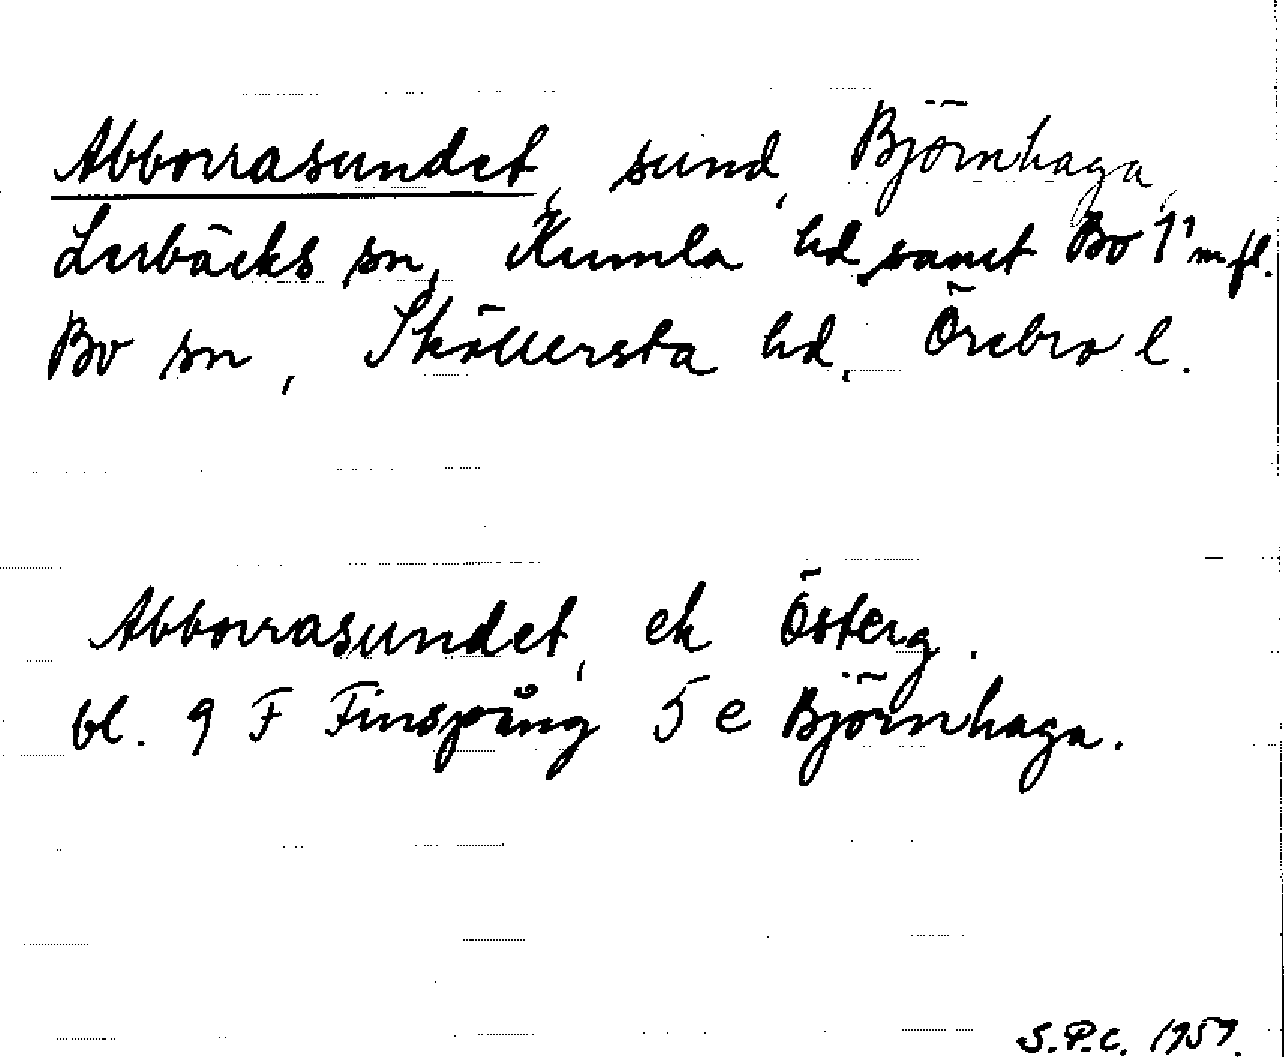 Abborrasundet, sund, Björnhaga,
Lerbäcks sn, Kumla hd, samt Bo 1¹ m fl.
Bo sn, Sköllersta hd, Örebro l.
Abborrasundet, ek Österg.
bl. 9 F Finspång 5 e Björnhaga.
S.P.C. 1957.